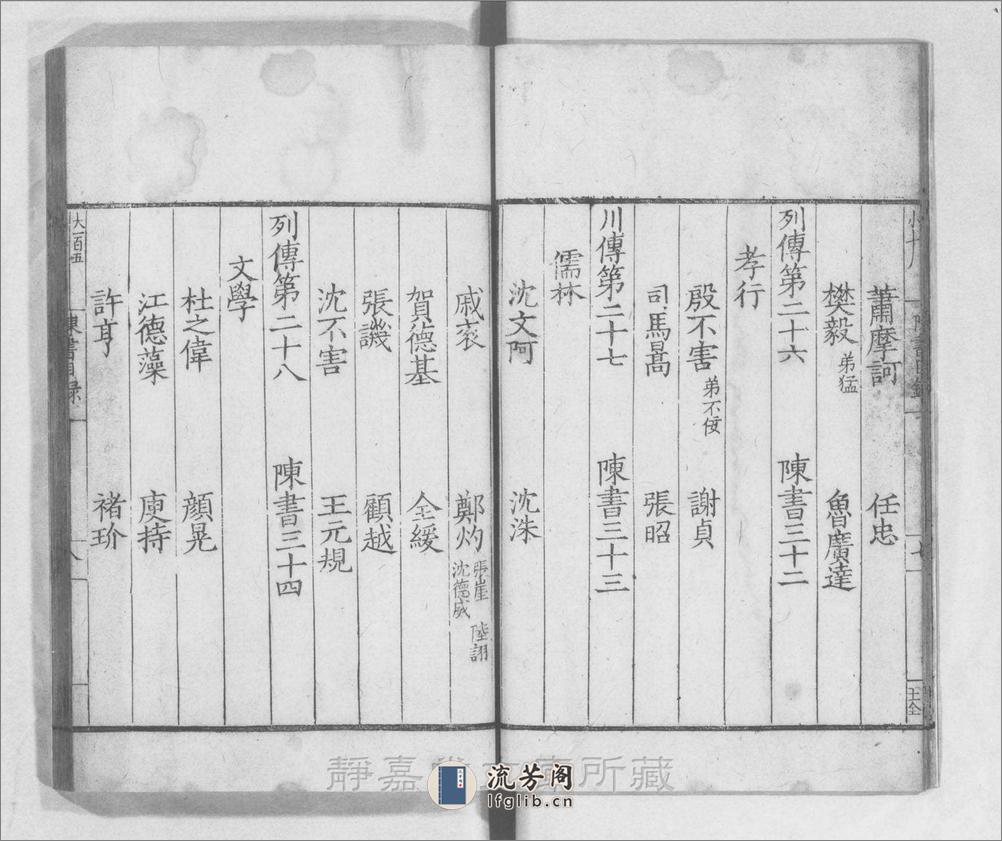 蕭摩訶 任忠
樊毅 弟猛 魯廣達
列傳第二十六 陳書三十二
孝行
殷不害 弟不佞 謝貞
司馬暠 張昭
列傳第二十七 陳書三十三
儒林
沈文阿 沈洙
王全
戚衮 鄭灼 張崖 陸詡 沈德威
賀德基 全緩
張譏 顧越
沈不害 王元規
列傳第二十八 陳書三十四
文學
杜之偉 顔晃
江德藻 庾持
許亨 褚玠
大一百五 陳書目録 八
靜嘉堂文庫所藏
流芳阁
lfglib.cn